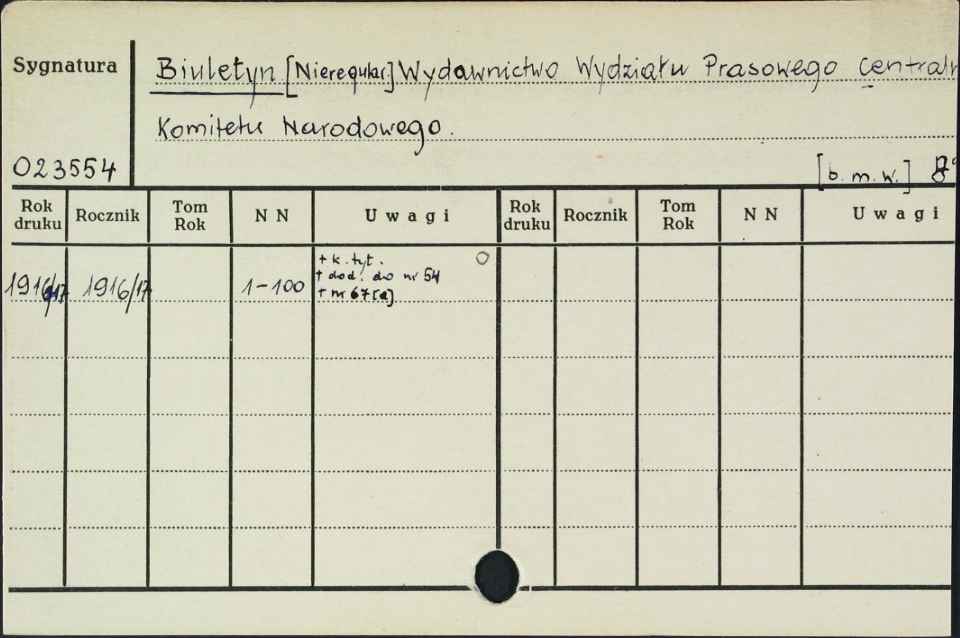 Sygnatura
Biuletyn [Nieregular.] Wydawnictwo Wydziału Prasowego Centraln
Komitetu Narodowego.
023554
[b. m. w.] 8°
Rok druku Rocznik Tom Rok N N Uwagi Rok druku Rocznik Tom Rok N N Uwagi
1916/17 1916/17 1-100 + k. tyt.
+ dod. do nr 54
+ nr 67[a]